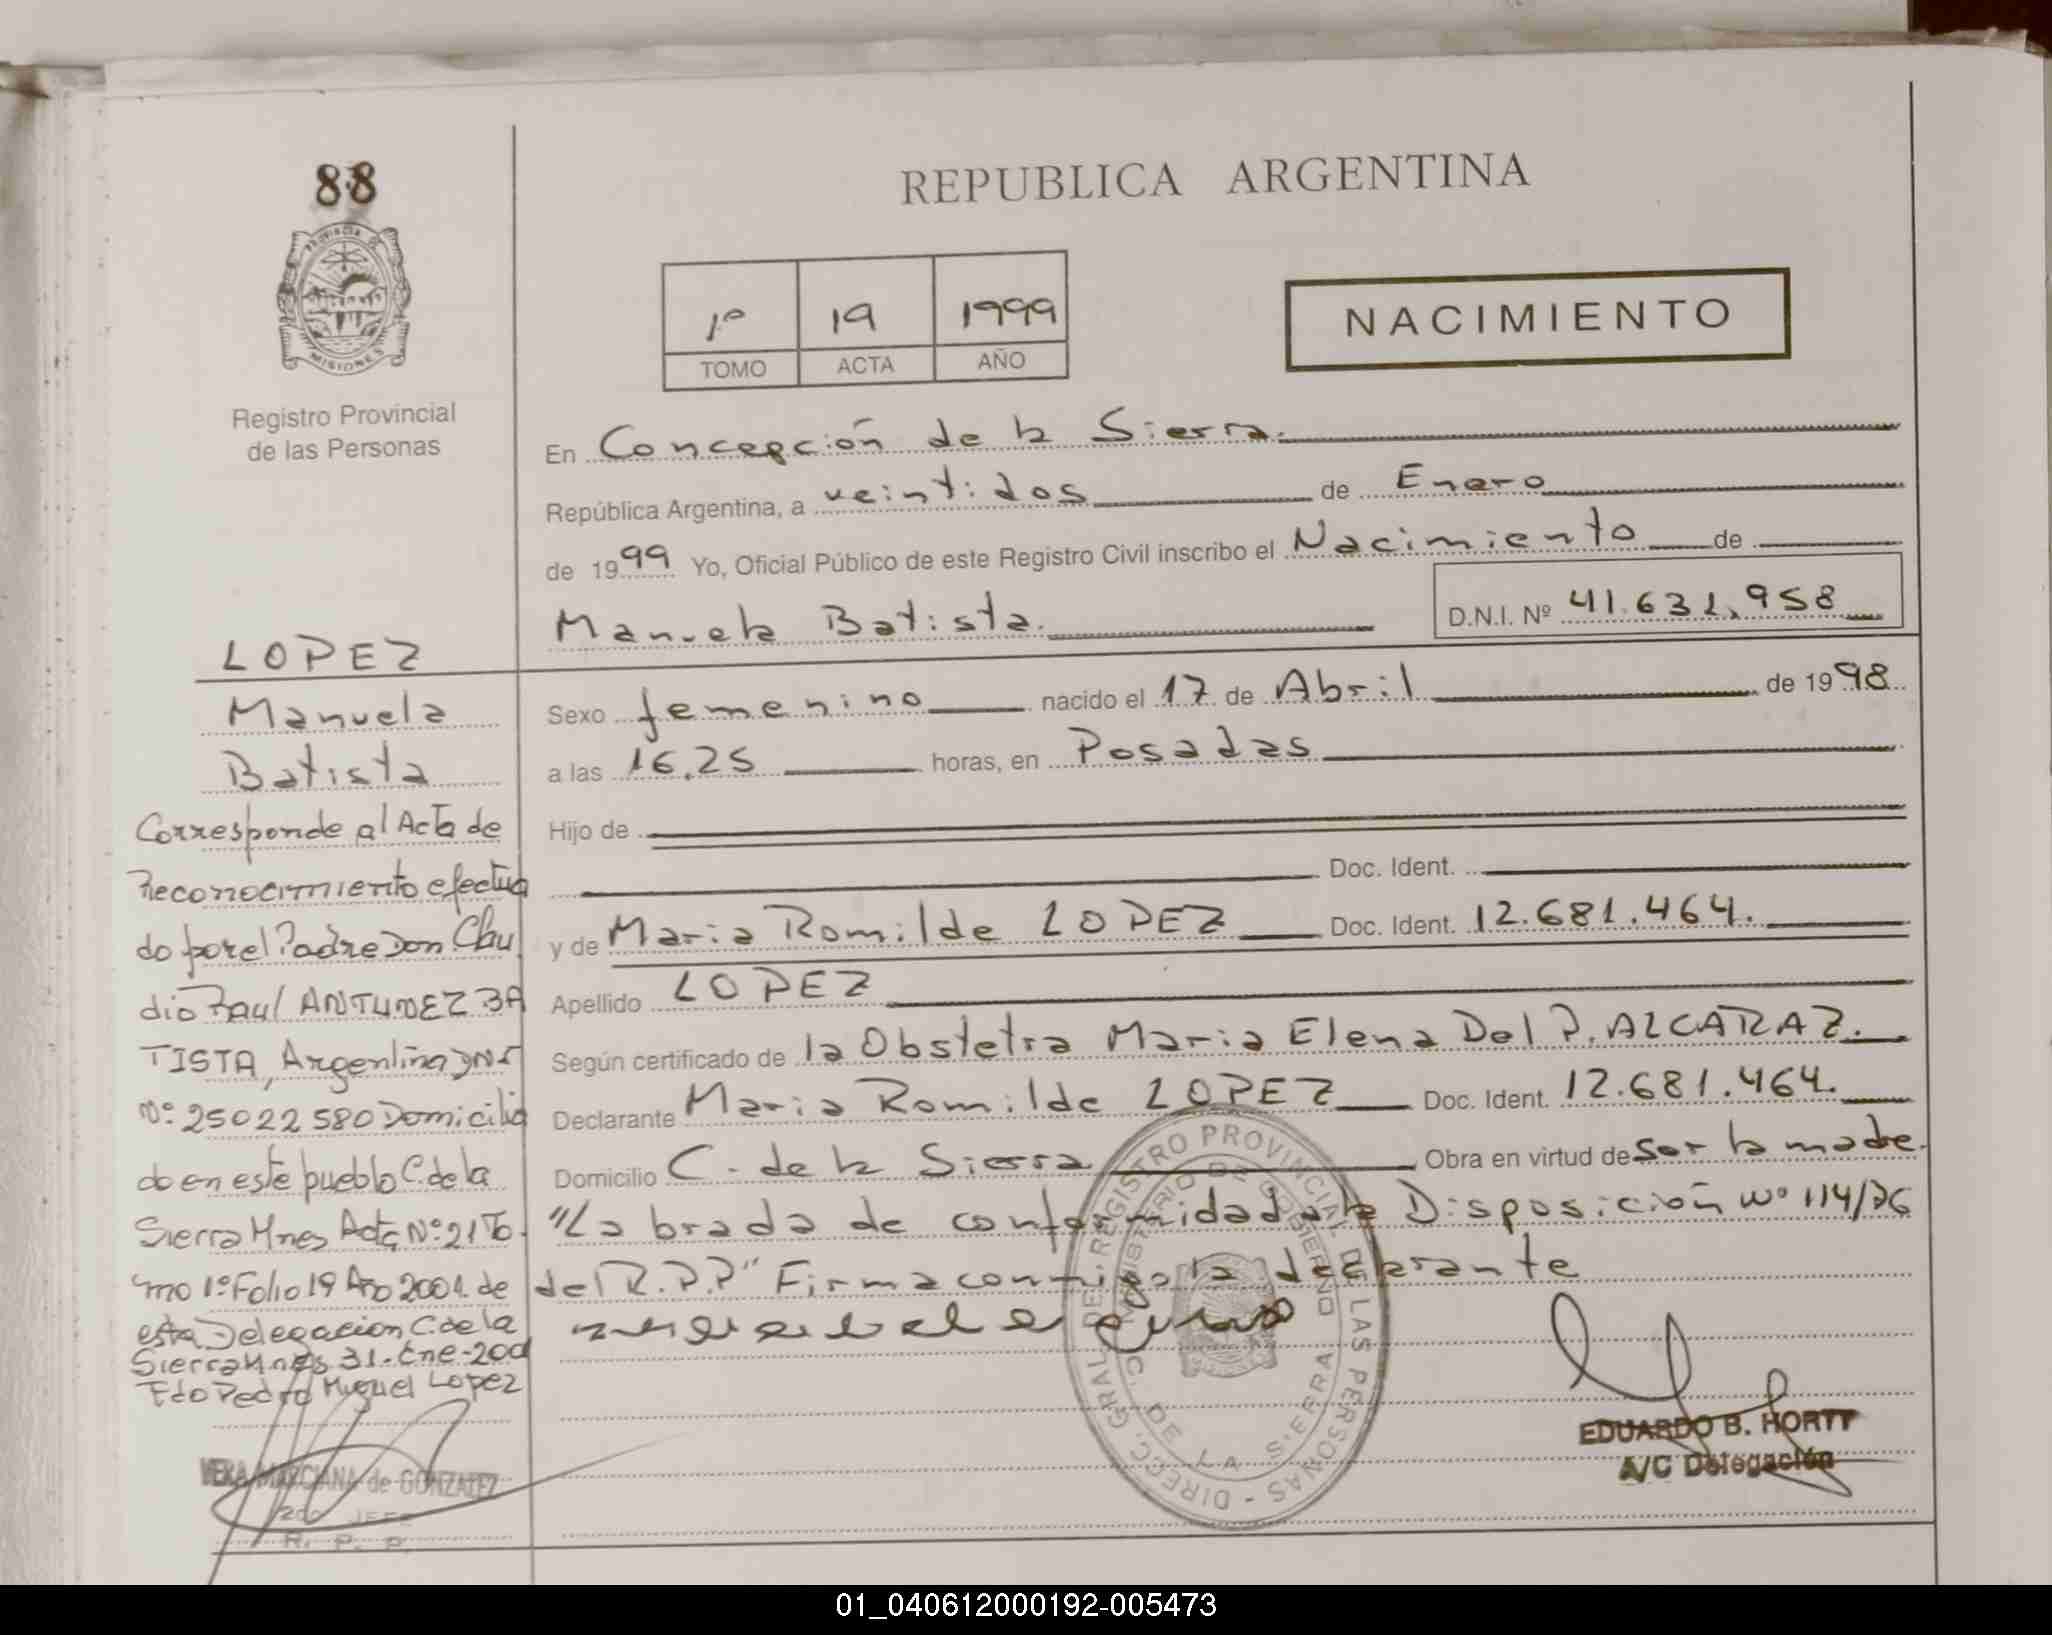 88
PROVINCIA DE
MISIONES
Registro Provincial
de las Personas
REPUBLICA ARGENTINA
1º 19 1999
TOMO ACTA AÑO
NACIMIENTO
En Concepción de la Sierra.
República Argentina, a veintidos de Enero
de 1999 Yo, Oficial Público de este Registro Civil inscribo el Nacimiento de
Manuela Batista. D.N.I. Nº 41.631.958
Sexo femenino nacido el 17 de Abril de 1998
a las 16.25 horas, en Posadas
Hijo de
Doc. Ident.
y de Maria Romilde LOPEZ Doc. Ident. 12.681.464.
Apellido LOPEZ
Según certificado de la Obstetra Maria Elena Del P. ALCARAZ.
Declarante Maria Romilde LOPEZ Doc. Ident. 12.681.464.
Domicilio C. de la Sierra Obra en virtud de ser la madre.
"Labrada de conformidad a la Disposición Nº 114/76
del R.P.P" Firma conmigo la declarante
EDUARDO B. HORTT
A/C Delegación
DIRECC. GRAL. DEL REGISTRO PROVINCIAL DE LAS PERSONAS -
MINISTERIO DE GOBIERNO
C. DE LA SIERRA
LOPEZ
Manuela
Batista
Corresponde al Acta de
Reconocimiento efectua
do por el Padre Don Clau
dio Raul ANTUNEZ BA
TISTA, Argentino DNI
Nº: 25022580 Domicilia
do en este pueblo C. de la
Sierra Mnes Acta Nº: 21 To
mo 1º Folio 19 Año 2001. de
esta Delegacion C. de la
Sierra Mnes 31-Ene-200
Fdo Pedro Miguel Lopez
VERA MARCIANA de GONZALEZ
2do JEFE
R. P. P.
01_040612000192-005473